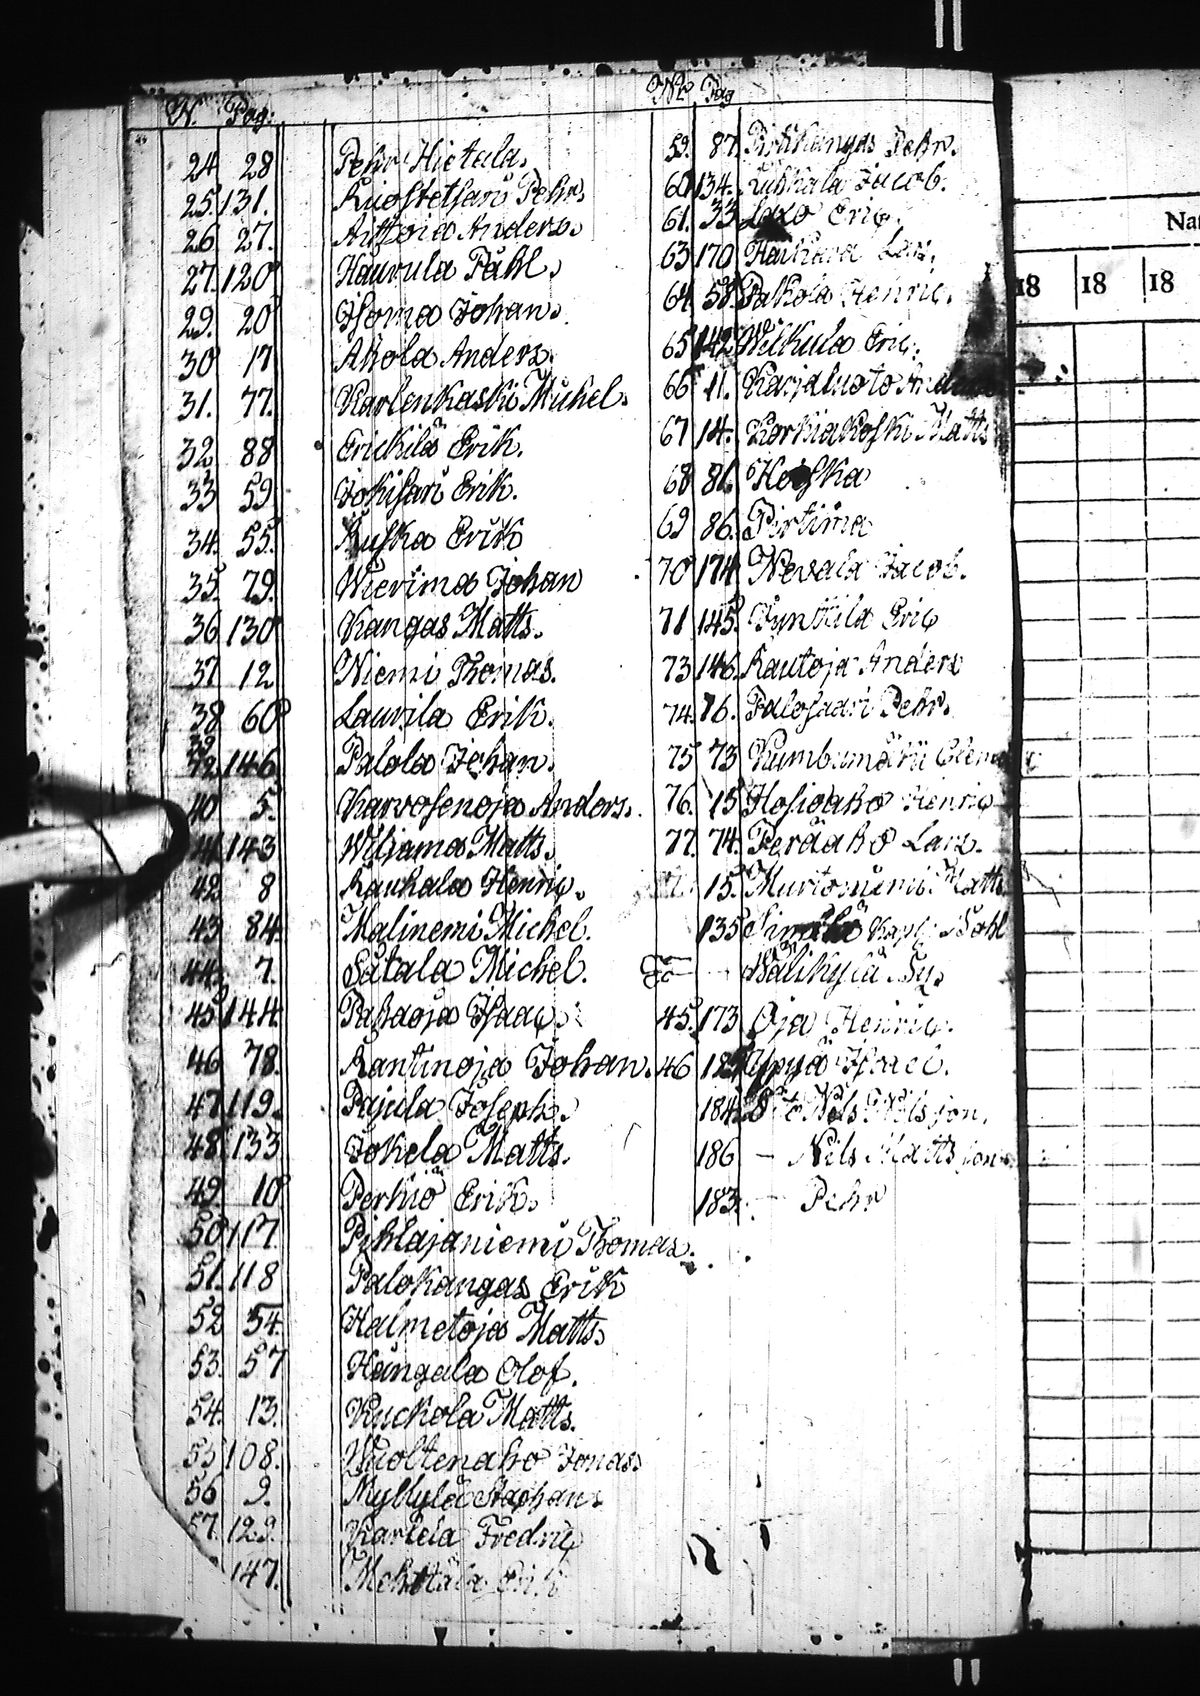 N. Pag:
24 28 Pehr Hietala.
25. 131. Kuostetsari Pehr.
26 27. Aittoia Anders.
27. 120 Haurula Påhl.
29. 20 Isoma Johan.
30 17 Ahola Anders.
31. 77. Karlenkaski Mickel.
32 88 Erickilä Erik.
33 59 Jokisari Erik.
34. 55. Ruska Erik
35. 79. Wierima Johan
36 130 Kangas Matts.
37 12 Niemi Thomas.
38 60 Laurila Erik.
39 146 Palola Johan.
40 5. Karvosenoja Anders.
41 143 Wiljama Matts.
42 8 Kauhala Henric.
43 84 Malinemi Michel.
44. 7. Satala Michel.
45 144 Passoja Isaac.
46 78. Kantinoja Johan.
47 119. Pajula Joseph.
48 133 Jokela Matts.
49 10 Perkiö Erik.
50 117 Pihlajaniemi Thomas.
51. 118 Palokangas Erik
52 54. Halmetoja Matts.
53. 57 Hängala Olof.
54. 13. Kuckola Matts.
55 108. Wuoltenaho Jonas
56 9. Myllylä Staphan.
57. 129. Karlela Fredric
147. Mehtälä Erik
Nr Pag
59. 87. Pitkkangas Pehr.
60 134. Jacob.
61. 33 Laxo Eric.
63 170 Haikara Lars.
64 58. Pakola Henric.
65 142 Wilkula Eric.
66 11. Karjaluoto
67 14. Korkiakoski Matts
68 81. Heiska
69 86. Pirtima
70 174 Nevala Jacob.
71 145. Tynkkilä Eric
73 146. Rautoja Anders
74. 76. Palosaari Pehr.
75 73 Kumbumäki
76. 15 Hosioaho Henric
77. 74. Peräaho Lars.
15. Murtomiemi Matts
135 Kapl. Påhl
Wälikylä By.
45. 173 Oja Henric.
46 Yppyä
184. Nils Nilsson.
186 — Nils Mattsson
183. — Pehr
Nat
18 18 18